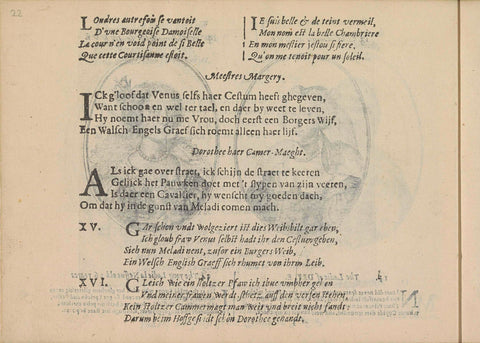 22
Loudres autrefois se vantois
D'vne Bourgeoise Damoiselle
La cour n'en void point de si Belle
Que cette Courtisanne estoit.
Ie suis belle & de teint vermeil,
Mon nom est la belle Chambriere
En mon mestier j'estou si fiere,
Qu'on me tenoit pour un soleil.
Meestres Margery.
ICk g'loof dat Venus selfs haer Cestum heeft ghegeven,
Want schoon en wel ter tael, en daer by weet te leven,
Hy noemt haer nu me Vrou, doch eerst een Borgers Wijf,
Een Walsch-Engels Graef sich roemt alleen haer lijf.
Dorothee haer Camer-Maeght.
ALs ick gae over straet, ick schijn de straet te keeren
Gelijck het Pauwken doet met 't slypen van zijn veeren,
Is daer een Cavallier, hy wenscht my goeden dach,
Om dat hy in de gunst van Meladi comen mach.
XV.
GAr schon vndt wolgeziert ist dies Weibsbilt gar eben,
Ich glaub fraw Venus selbst hadt ihr den Cestum geben,
Sieh nun Meladi nent, zufor ein Burgers Weib,
Ein Welsch English Graeff sich rhumet von ihrem Leib.
XVI.
GLeich wie ein stoltzer Pfaw ich thue vmbher gehn
Vnd meiner frawen werdt stretz auff den versen stehen,
Kein stoltzer Cammermagt man weit vnd breit nicht fandt
Darum beim Hoffgesidt schön Dorothee genandt.